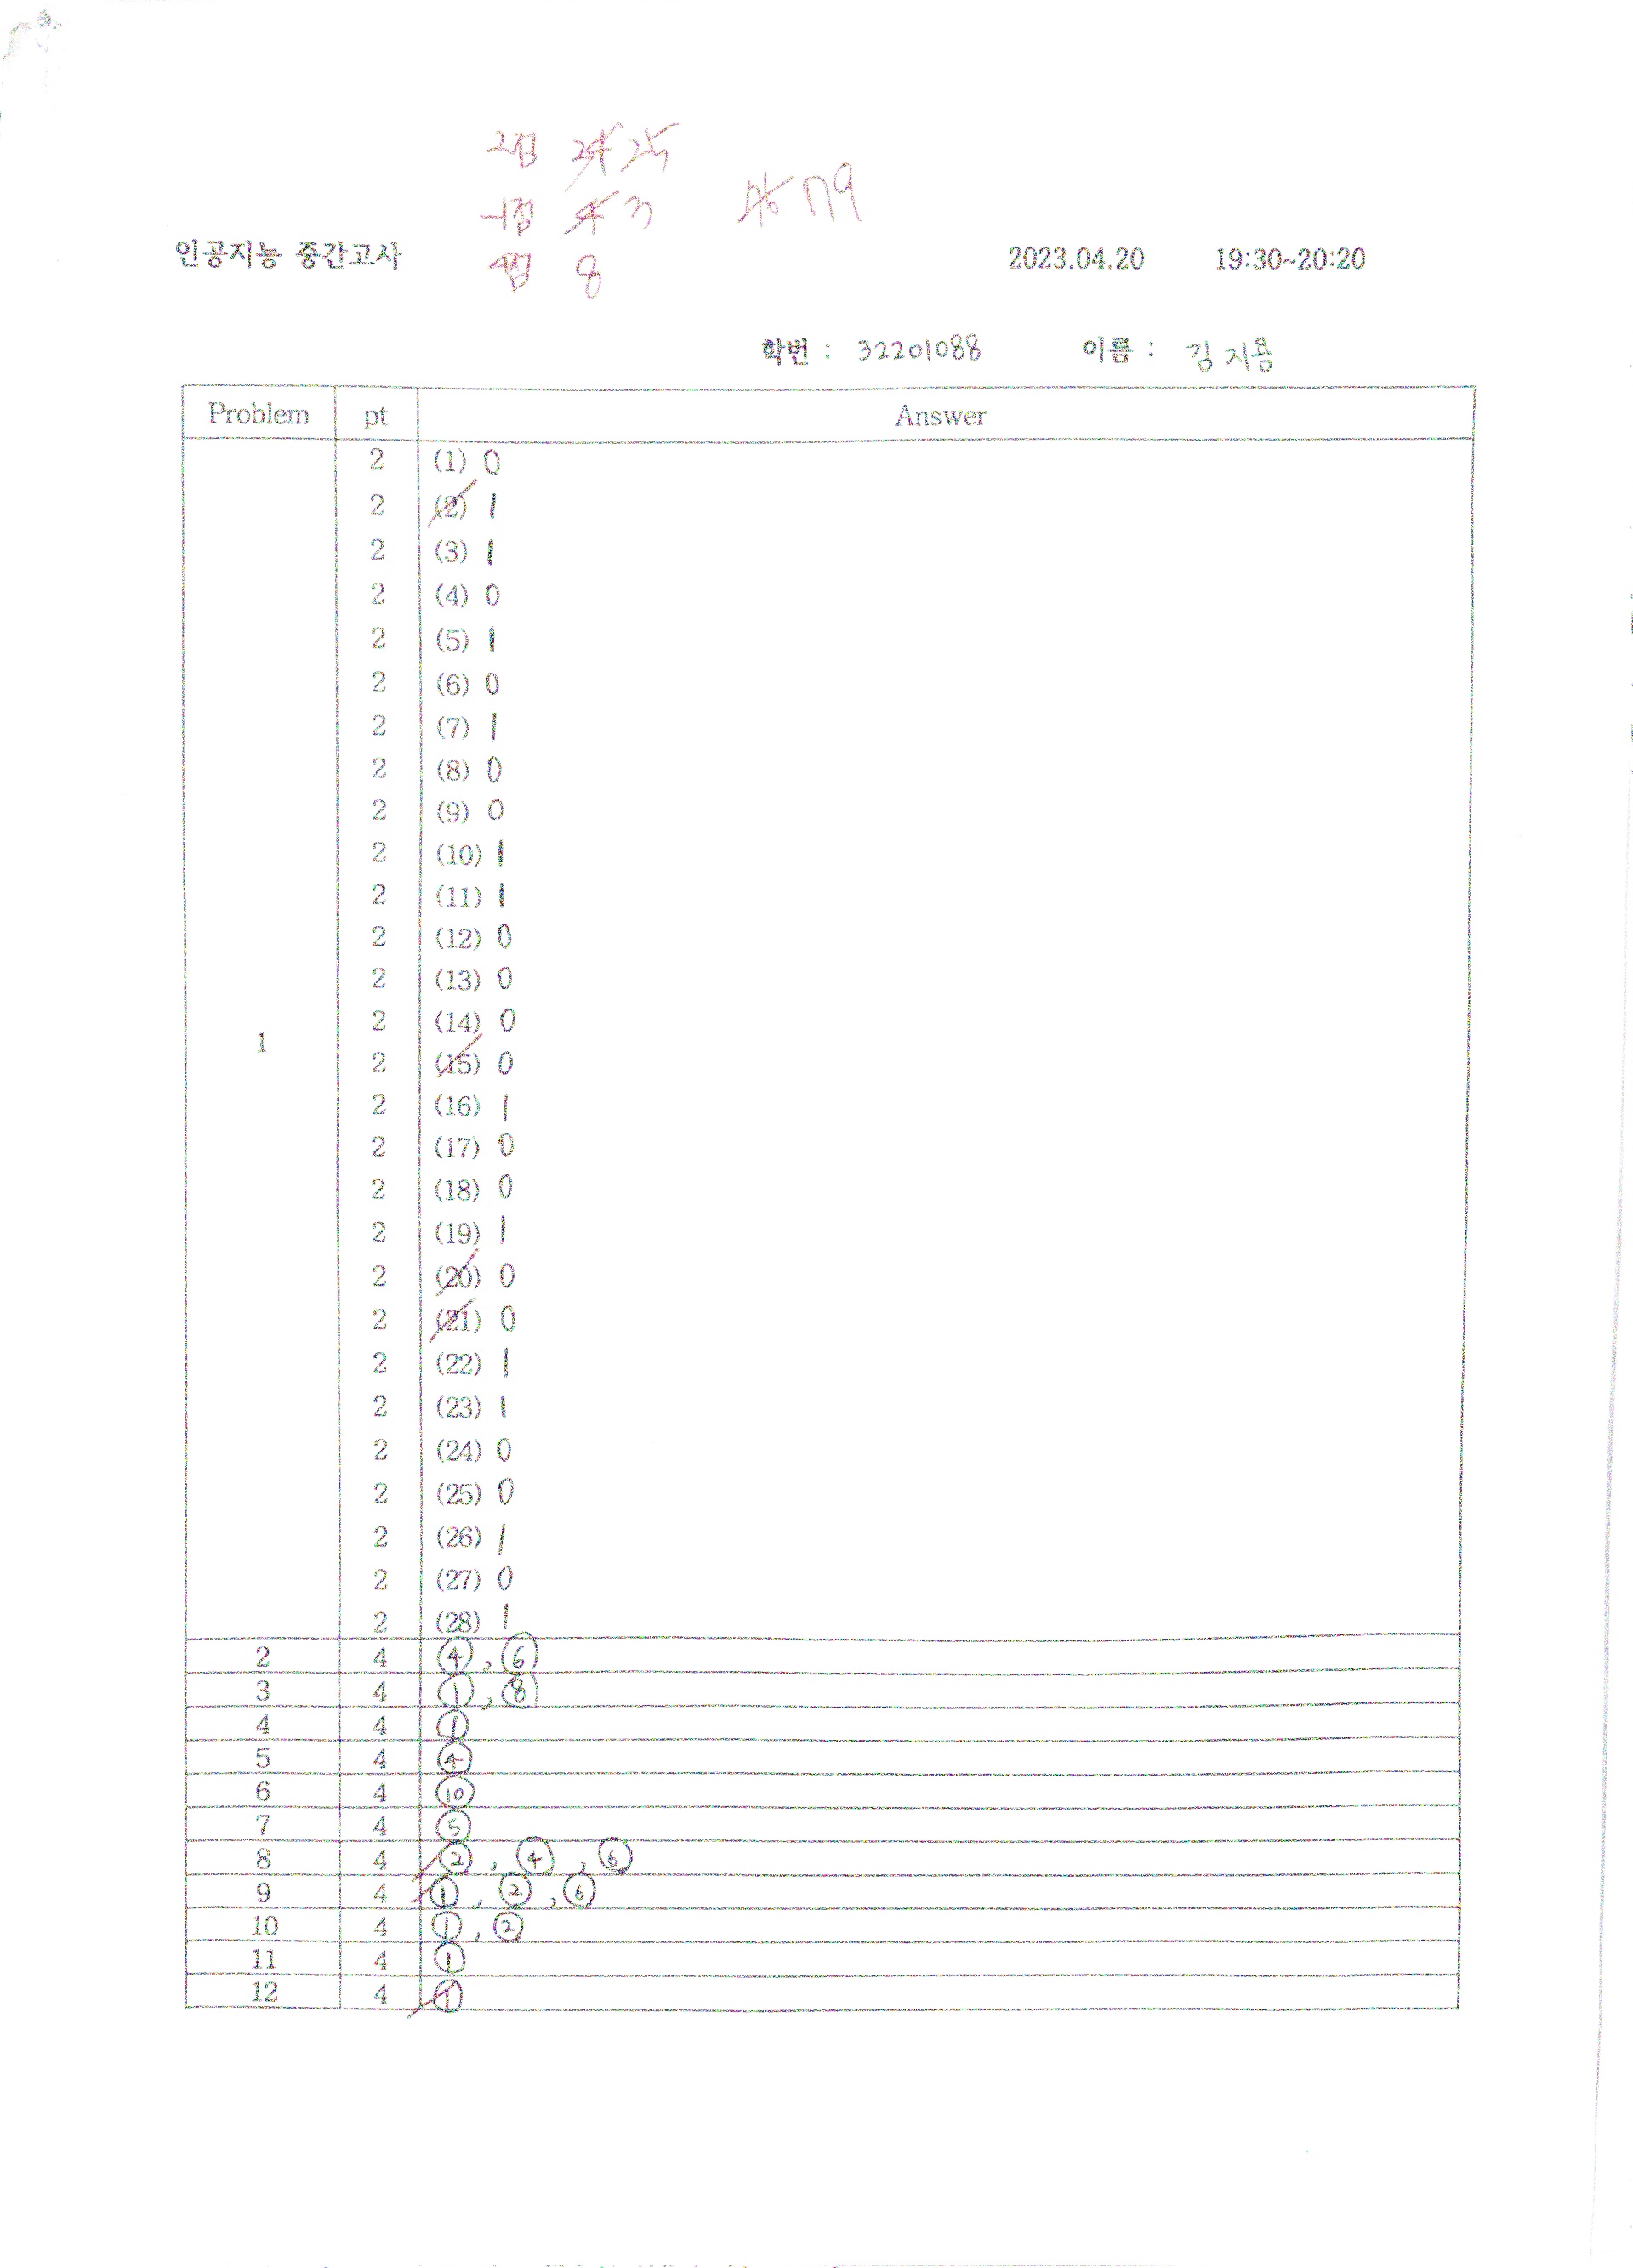 2점 24 25
-1점 4 3 76 79
인공지능 중간고사 4점 8 2023.04.20 19:30~20:20
학번 : 32201088 이름 : 김지용
Problem pt Answer
2 (1) 0
2 (2) 1
2 (3) 1
2 (4) 0
2 (5) 1
2 (6) 0
2 (7) 1
2 (8) 0
2 (9) 0
2 (10) 1
2 (11) 1
2 (12) 0
2 (13) 0
2 (14) 0
1
2 (15) 0
2 (16) 1
2 (17) 0
2 (18) 0
2 (19) 1
2 (20) 0
2 (21) 0
2 (22) 1
2 (23) 1
2 (24) 0
2 (25) 0
2 (26) 1
2 (27) 0
2 (28) 1
2 4 ④, ⑥
3 4 ①, ⑧
4 4 ①
5 4 ④
6 4 ⑩
7 4 ⑤
8 4 ②, ④, ⑥
9 4 ①, ②, ⑥
10 4 ①, ②
11 4 ①
12 4 ①